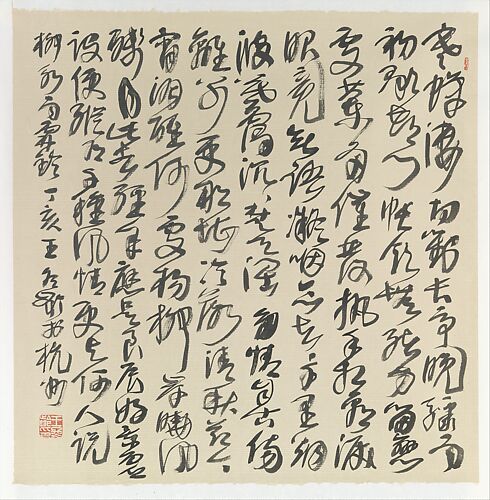 寒蟬淒切對長亭晚驟雨
初歇都門帳飲無緒方留戀
處蘭舟催發執手相看淚
眼竟無語凝咽念去去千里煙
波暮靄沉沉楚天闊多情自古傷
離別更那堪冷落清秋節今
宵酒醒何處楊柳岸曉風
殘月此去經年應是良辰好景虛
設便縱有千種風情更與何人說
柳永雨霖鈴丁亥王冬齡於杭州